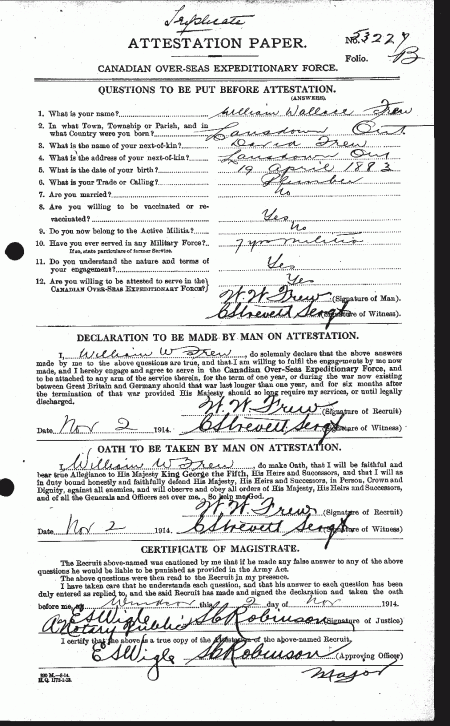 Triplicate
ATTESTATION PAPER.
No. 53227
Folio. B
CANADIAN OVER-SEAS EXPEDITIONARY FORCE.
QUESTIONS TO BE PUT BEFORE ATTESTATION.
(ANSWERS)
1. What is your name? William Wallace Frew
2. In what Town, Township or Parish, and in
what Country were you born? Lansdown Ont
3. What is the name of your next-of-kin? David Frew
4. What is the address of your next-of-kin? Lansdown Ont
5. What is the date of your birth? 19 April 1883
6. What is your Trade or Calling? Plumber
7. Are you married? No
8. Are you willing to be vaccinated or re-
vaccinated? Yes
9. Do you now belong to the Active Militia? No
10. Have you ever served in any Military Force? 7 yrs Militia
If so, state particulars of former Service.
11. Do you understand the nature and terms of
your engagement? Yes
12. Are you willing to be attested to serve in the Yes
CANADIAN OVER-SEAS EXPEDITIONARY FORCE?
W. W. Frew (Signature of Man).
(Signature of Witness).
DECLARATION TO BE MADE BY MAN ON ATTESTATION.
I, William W Frew, do solemnly declare that the above answers
made by me to the above questions are true, and that I am willing to fulfil the engagements by me now
made, and I hereby engage and agree to serve in the Canadian Over-Seas Expeditionary Force, and
to be attached to any arm of the service therein, for the term of one year, or during the war now existing
between Great Britain and Germany should that war last longer than one year, and for six months after
the termination of that war provided His Majesty should so long require my services, or until legally
discharged.
W. W. Frew (Signature of Recruit)
Date Nov 2 1914. (Signature of Witness)
OATH TO BE TAKEN BY MAN ON ATTESTATION.
I, William W Frew, do make Oath, that I will be faithful and
bear true Allegiance to His Majesty King George the Fifth, His Heirs and Successors, and that I will as
in duty bound honestly and faithfully defend His Majesty, His Heirs and Successors, in Person, Crown and
Dignity, against all enemies, and will observe and obey all orders of His Majesty, His Heirs and Successors,
and of all the Generals and Officers set over me. So help me God.
W. W. Frew (Signature of Recruit)
Date Nov 2 1914. (Signature of Witness)
CERTIFICATE OF MAGISTRATE.
The Recruit above-named was cautioned by me that if he made any false answer to any of the above
questions he would be liable to be punished as provided in the Army Act.
The above questions were then read to the Recruit in my presence.
I have taken care that he understands each question, and that his answer to each question has been
duly entered as replied to, and the said Recruit has made and signed the declaration and taken the oath
before me, at Windsor this 2 day of Nov 1914.
E S Wigle Robinson (Signature of Justice)
A Notary Public
I certify that the above is a true copy of the Attestation of the above-named Recruit.
E S Wigle Robinson (Approving Officer)
Major